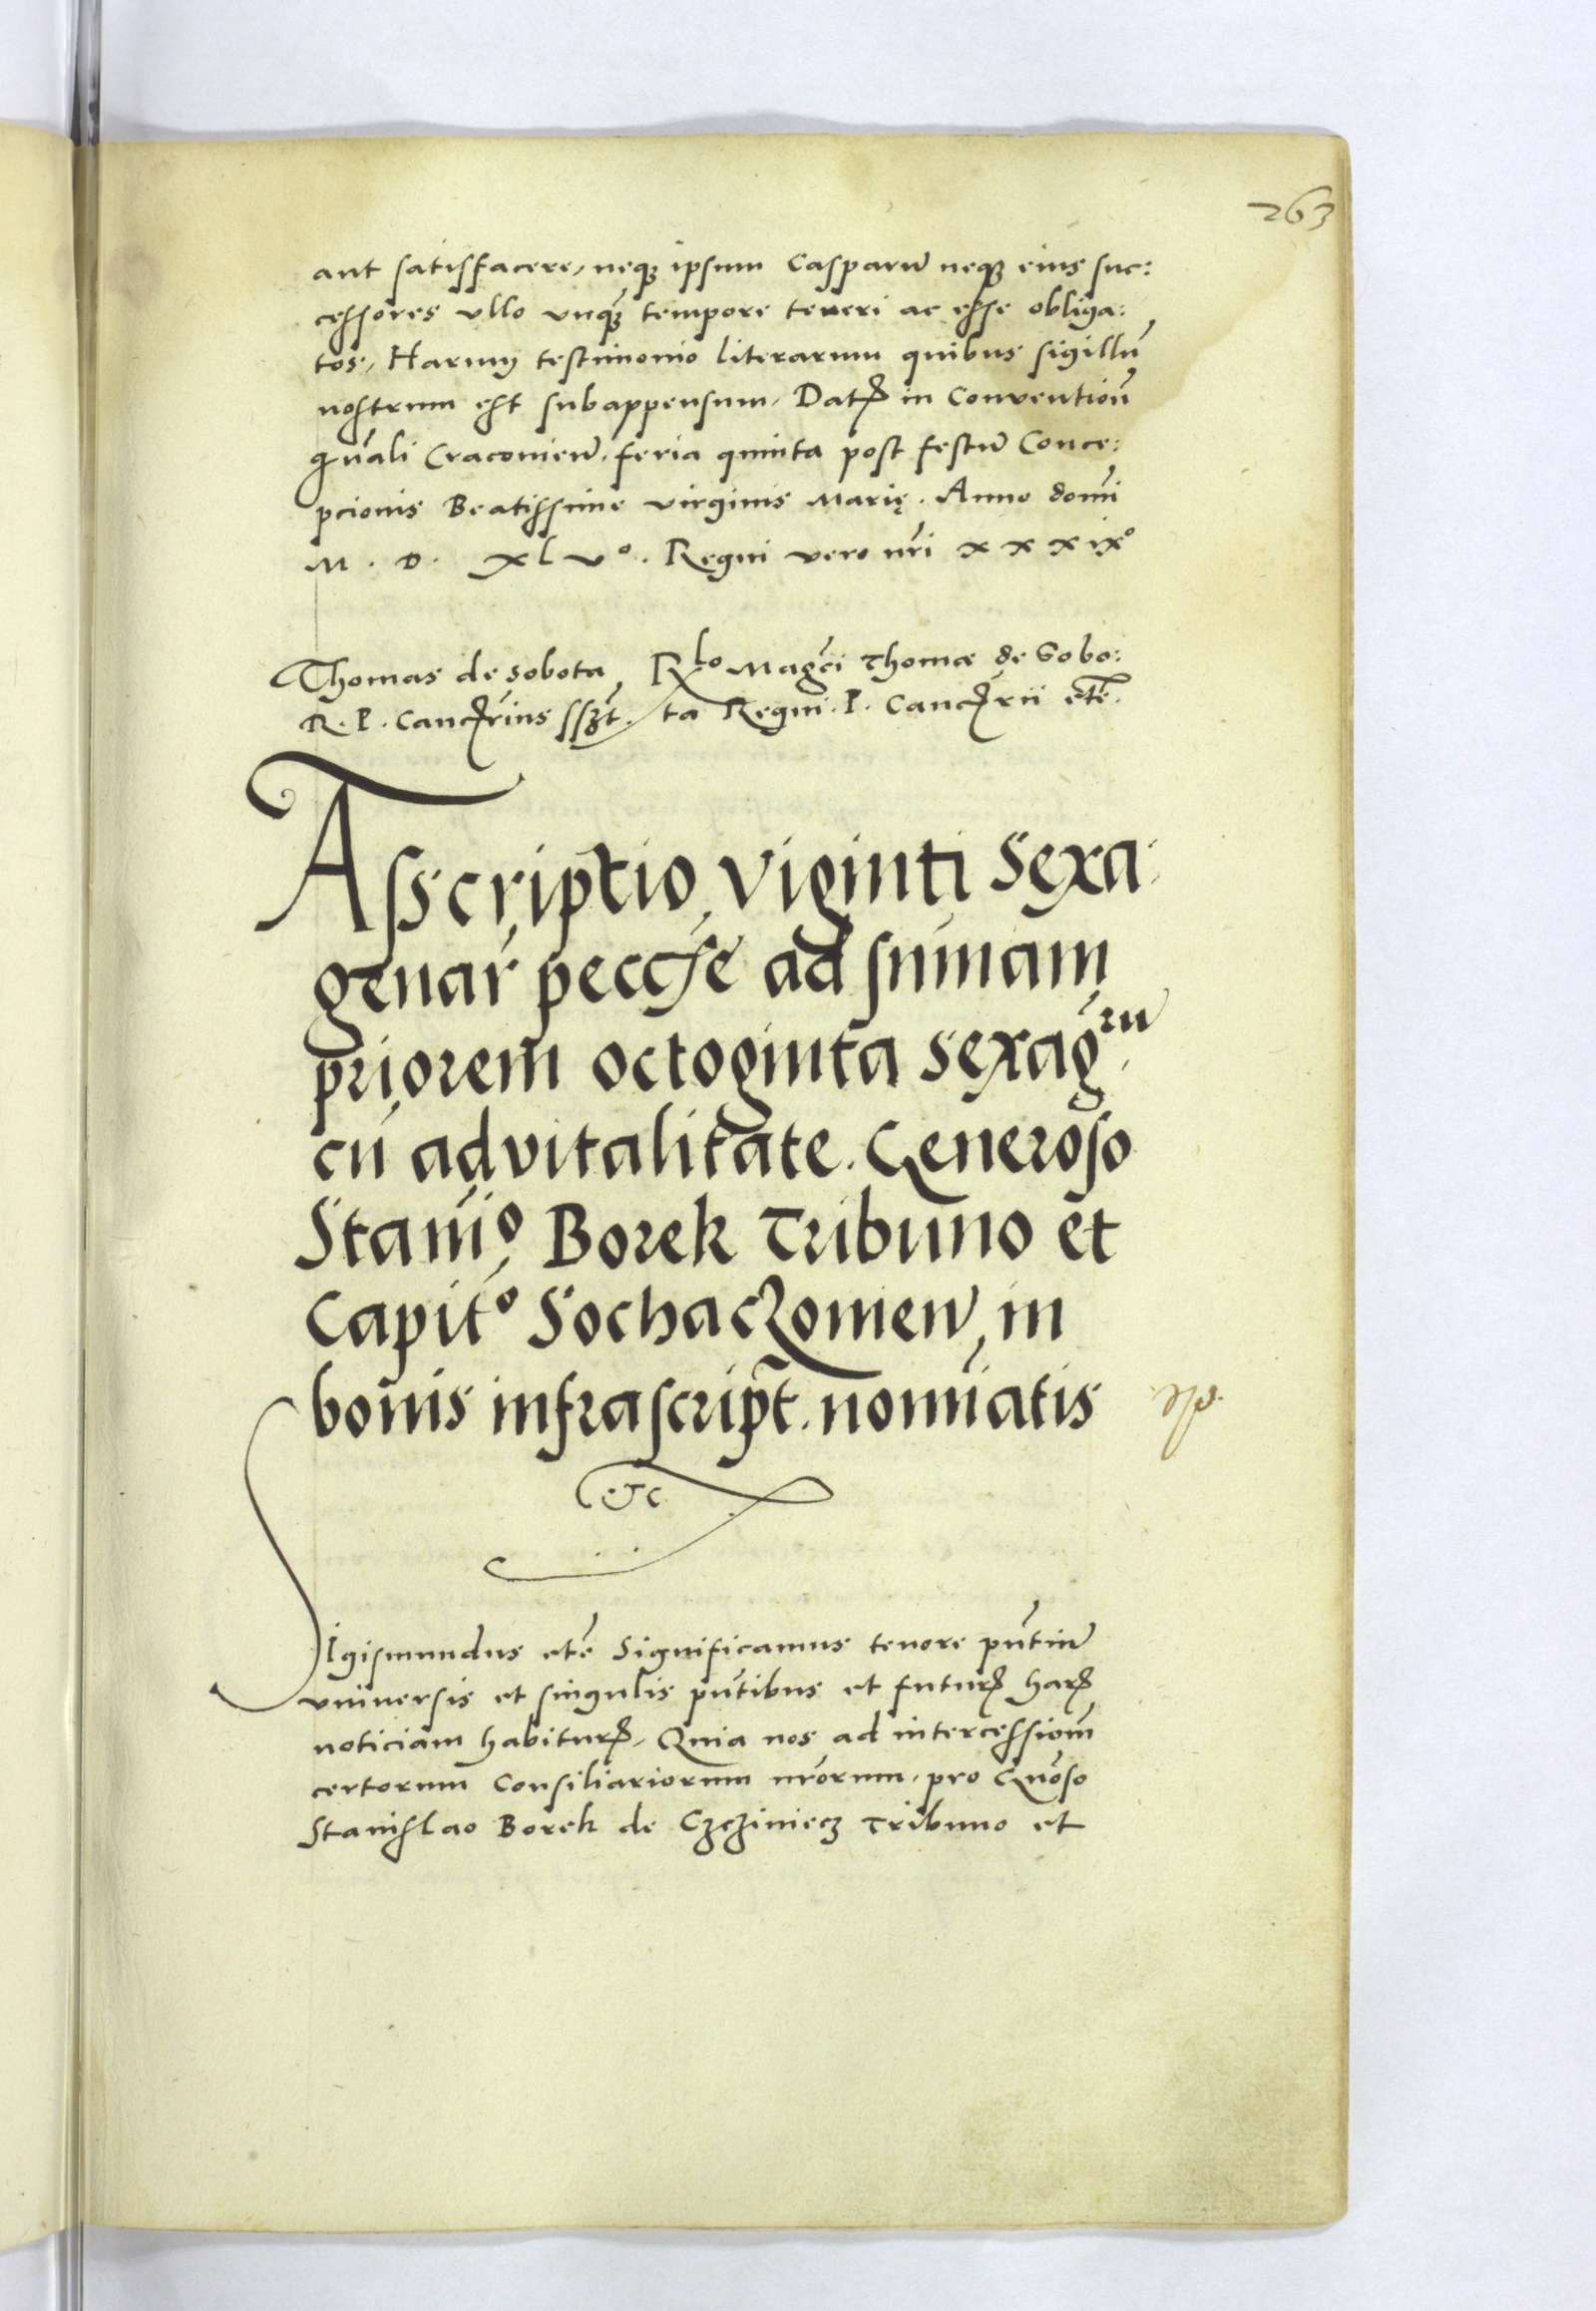 263
aut satisfacere, neqȝ ipsum Casparū neqȝ eius suc:
cessores vllo vnqȝ̄ tempore teneri ac esse obliga:
tos, Harum testimonio literarum quibus sigillū
nostrum est subappensum. Datꝭ in Conventioñ
gñali Cracovieñ. feria quinta post festū Conce:
pcionis Beatissime virginis Marię. Anno domi̅
M. D. xlvº. Regni vero nr̄i xxxixº
Thomas de Sobota R̄lo Magc̄i Thomæ de Sobo:
R. P. Cancꝝrius ssȝt. ta Regni. P. Cancꝝrii etc̄.
Asscriptio viginti Sexa-
genar̄ pecc̄ȩ ad sum̄am
priorem octoginta sexag̅rū
cū advitalitate. Generoso
Stan̄iº Borek Tribuno et
Capit̄º Sochaczovieñ, in
bonis infrascrip̄t. nomīatis
etc
SIgismundus etc̄ Significamus tenore pn̄tiū
vniversis et singulis pn̄tibus et futurꝭ harꝭ
noticiam habiturꝭ, Quia nos ad intercessiom̄
certorum Consiliariorum nr̄orum, pro Gn̄oso
Stanislao Borek de Czcziniecz Tribuno et